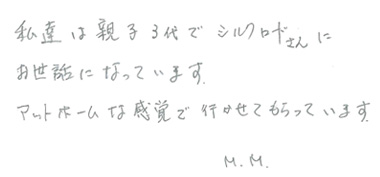 私達は親子3代でシルクロードさんに
お世話になっています.
アットホームな感覚で行かせてもらっています.
M.M.